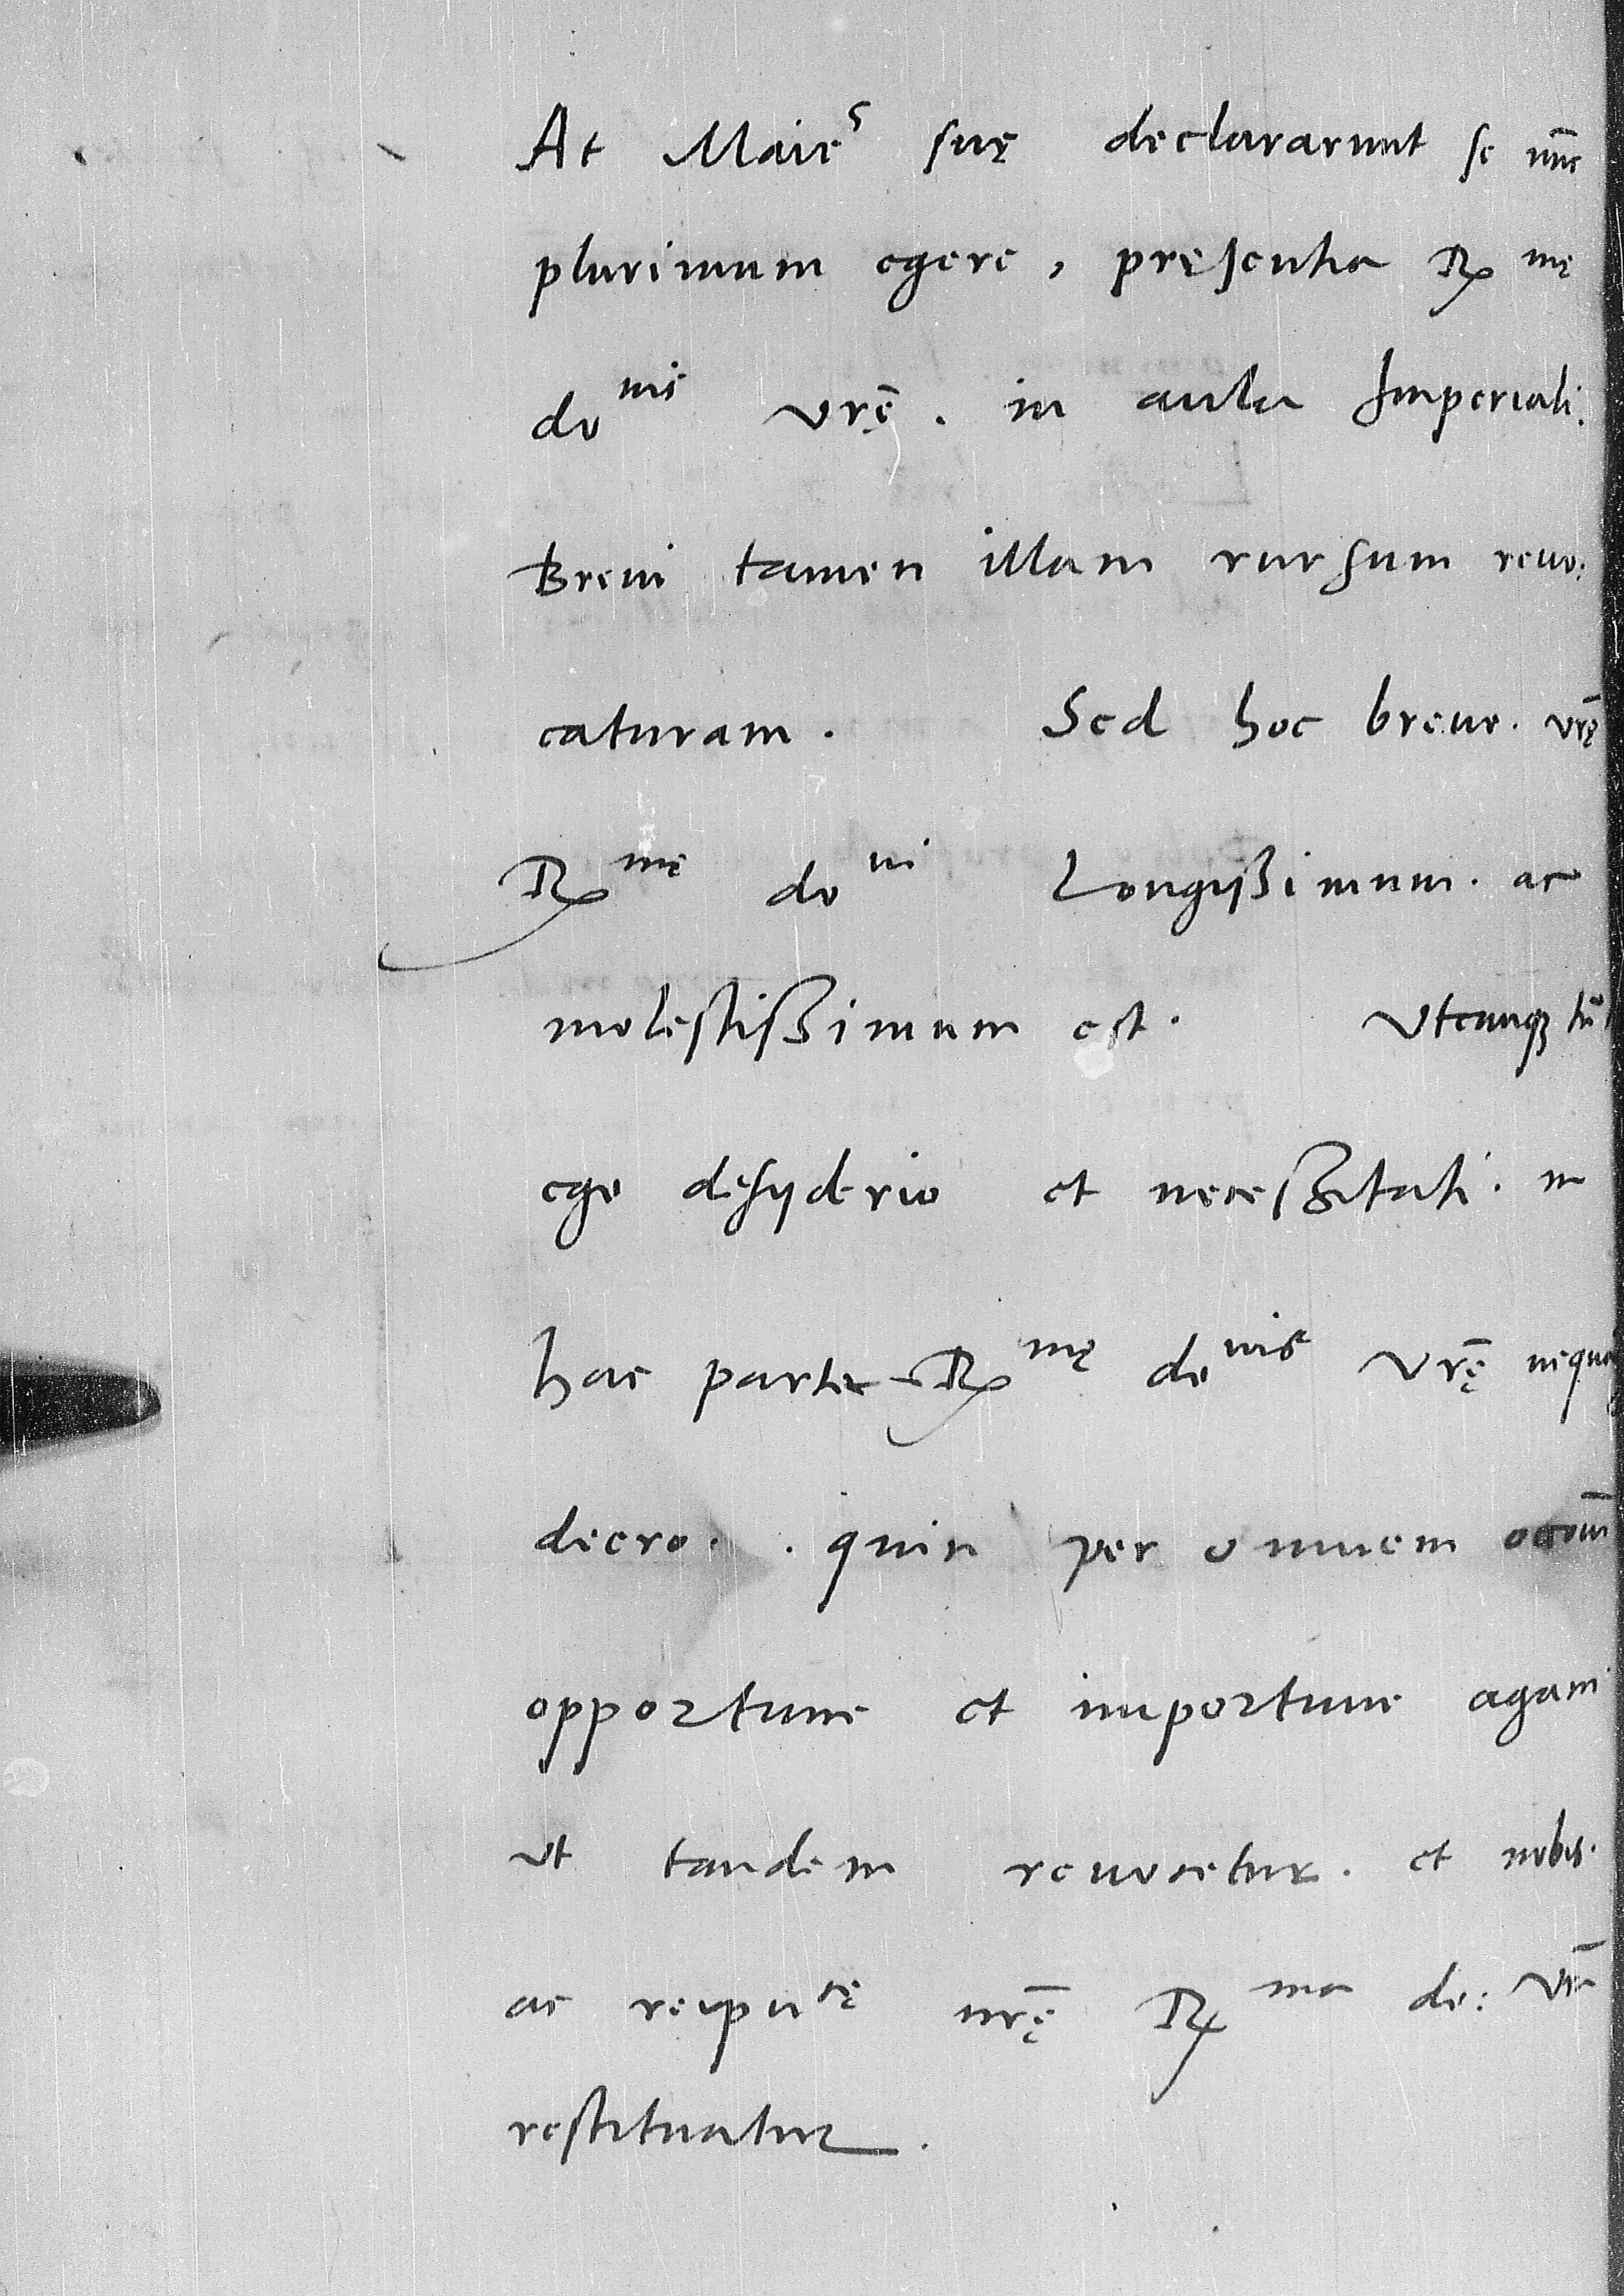 At Maie^s suę declararunt se nūc
plurimum egere, pręsentia R mę
do^nis vrę̄. in aula Imperiali.
Breui tamen illam rursum reuo:
caturam. Sed hoc breue. vrę̄
R^mę do^ni Longißimum. ac
molestißimum est. Vtcunqꝫ tn̄
ego desyderio et necessitati. in
hac parte R^mę do^nis Vrę̄ nequa
deero. quin per omnem occōm̄
opportune et importune agam
vt tandem reuocetur. et nobis.
ac reipu^cę nrę̄ R^ma do: Vrā
restituatur.